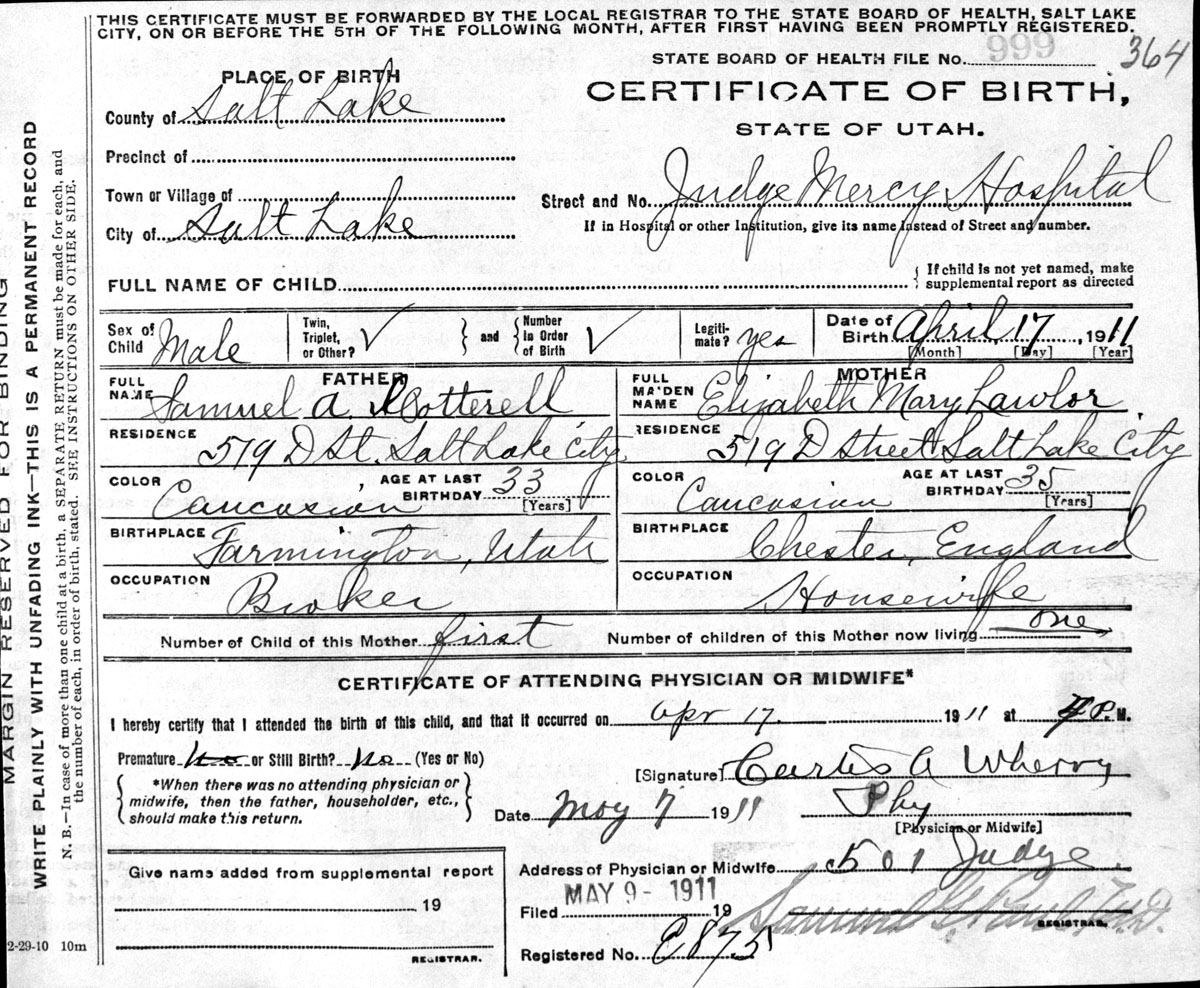 THIS CERTIFICATE MUST BE FORWARDED BY THE LOCAL REGISTRAR TO THE STATE BOARD OF HEALTH, SALT LAKE
CITY, ON OR BEFORE THE 5TH OF THE FOLLOWING MONTH, AFTER FIRST HAVING BEEN PROMPTLY REGISTERED.
STATE BOARD OF HEALTH FILE No. 999 364
PLACE OF BIRTH
CERTIFICATE OF BIRTH,
STATE OF UTAH.
County of Salt Lake
Precinct of
Town or Village of
City of Salt Lake
Street and No. Judge Mercy Hospital
If in Hospital or other Institution, give its name instead of Street and number.
FULL NAME OF CHILD
{ If child is not yet named, make
supplemental report as directed
Sex of Child Male
Twin, Triplet, or Other? ✓ } and { Number In Order of Birth ✓
Legiti-mate? yes
Date of Birth April 17, 1911
[Month] [Day] [Year]
FATHER
FULL NAME Samuel A. Cotterell
RESIDENCE 579 D St. Salt Lake City
COLOR Caucasian AGE AT LAST BIRTHDAY 33 [Years]
BIRTHPLACE Farmington, Utah
OCCUPATION Broker
MOTHER
FULL MAIDEN NAME Elizabeth Mary Lawlor
RESIDENCE 519 D Street Salt Lake City
COLOR Caucasian AGE AT LAST BIRTHDAY 35 [Years]
BIRTHPLACE Chester, England
OCCUPATION Housewife
Number of Child of this Mother first Number of children of this Mother now living one
CERTIFICATE OF ATTENDING PHYSICIAN OR MIDWIFE*
I hereby certify that I attended the birth of this child, and that it occurred on Apr 17. 1911 at 4 P. M.
Premature No or Still Birth? No (Yes or No)
{ *When there was no attending physician or
midwife, then the father, householder, etc.,
should make this return. }
[Signature] Curtis A Wherry
Date May 7 1911 Phy
[Physician or Midwife]
Address of Physician or Midwife 501 Judge
Filed MAY 9 - 1911 19
REGISTRAR.
Registered No. E875
Give name added from supplemental report
19
REGISTRAR.
2-29-10 10m
MARGIN RESERVED FOR BINDING
WRITE PLAINLY WITH UNFADING INK—THIS IS A PERMANENT RECORD
N. B.—In case of more than one child at a birth, a SEPARATE RETURN must be made for each, and
the number of each, in order of birth, stated. SEE INSTRUCTIONS ON OTHER SIDE.